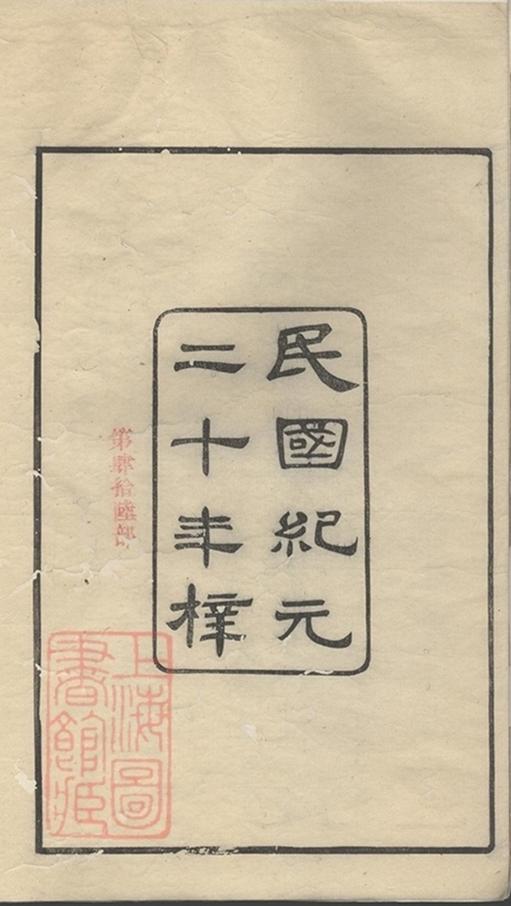 民國紀元
二十年梓
第肆拾國部
上海圖
書館藏